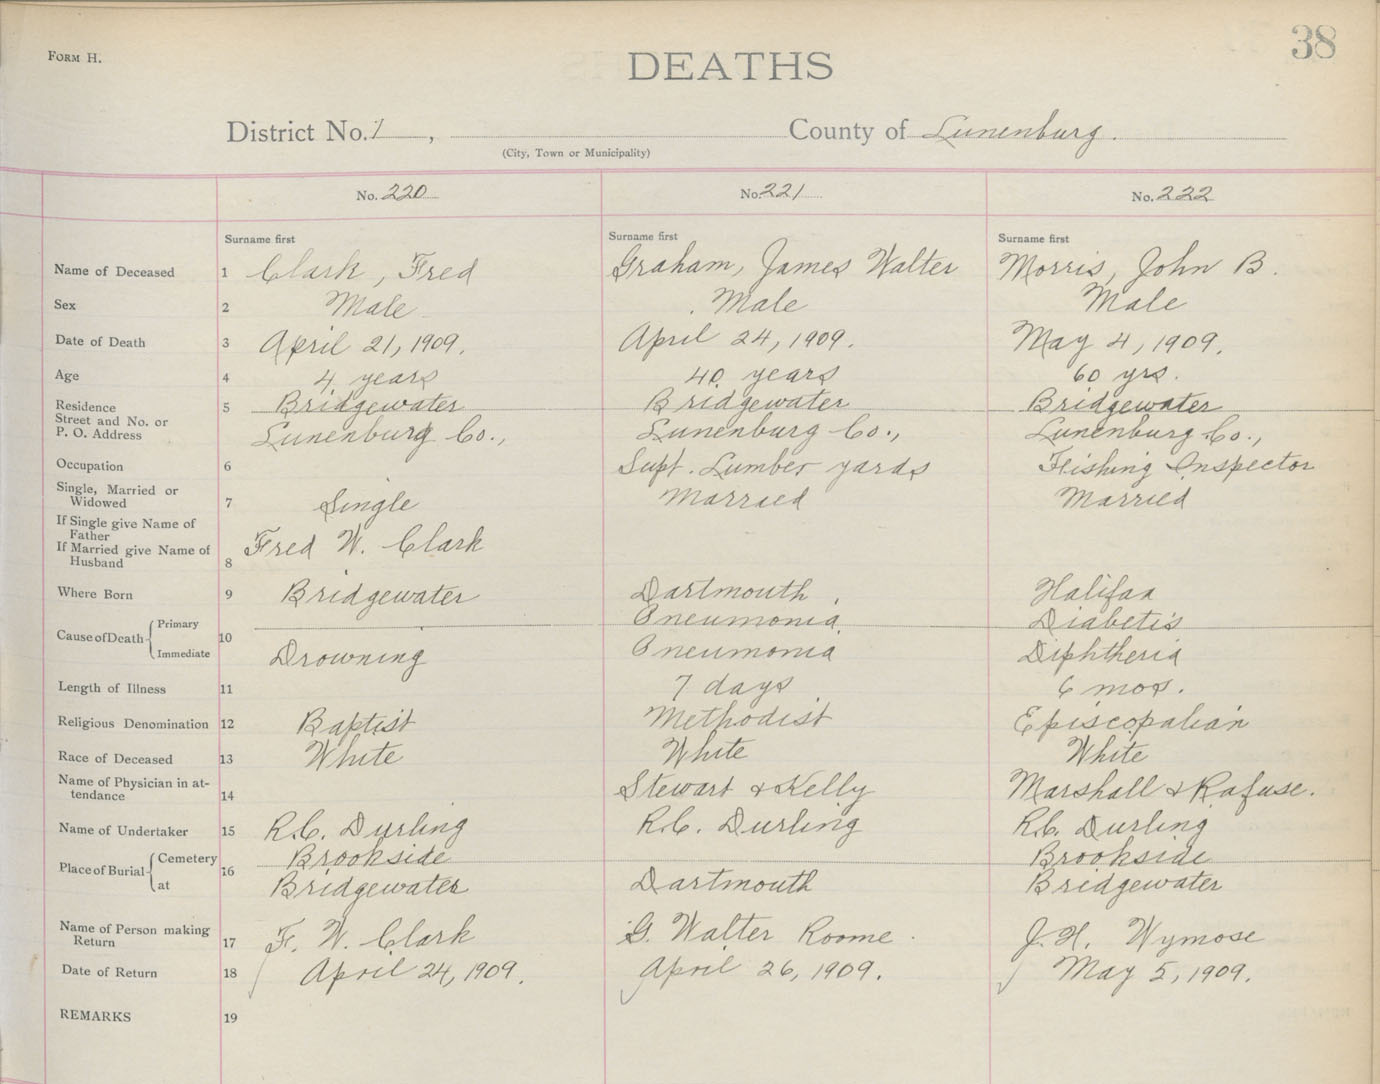 38
FORM H.
DEATHS
District No. 1, County of Lunenburg.
(City, Town or Municipality)
No. 220 No. 221 No. 222
Surname first Surname first Surname first
Name of Deceased 1 Clark, Fred Graham, James Walter Morris, John B.
Sex 2 Male Male Male
Date of Death 3 April 21, 1909. April 24, 1909. May 4, 1909.
Age 4 4 years 40 years 60 yrs.
Residence 5 Bridgewater Bridgewater Bridgewater
Street and No. or
P. O. Address Lunenburg Co., Lunenburg Co., Lunenburg Co.,
Occupation 6 Supt. Lumber yards Fishing Inspector
Single, Married or
Widowed 7 Single Married Married
If Single give Name of
Father
If Married give Name of Fred W. Clark
Husband 8
Where Born 9 Bridgewater Dartmouth Halifax
Cause of Death Primary 10 Pneumonia Diabetis
Immediate Drowning Pneumonia Diphtheria
Length of Illness 11 7 days 6 mos.
Religious Denomination 12 Baptist Methodist Episcopalian
Race of Deceased 13 White White White
Name of Physician in at-
tendance 14 Stewart & Kelly Marshall & Rafuse.
Name of Undertaker 15 R.C. Durling R.C. Durling R.C. Durling
Place of Burial Cemetery 16 Brookside Brookside
at Bridgewater Dartmouth Bridgewater
Name of Person making
Return 17 F. W. Clark G. Walter Roome. J. H. Wymose
Date of Return 18 April 24, 1909. April 26, 1909. May 5, 1909.
REMARKS 19